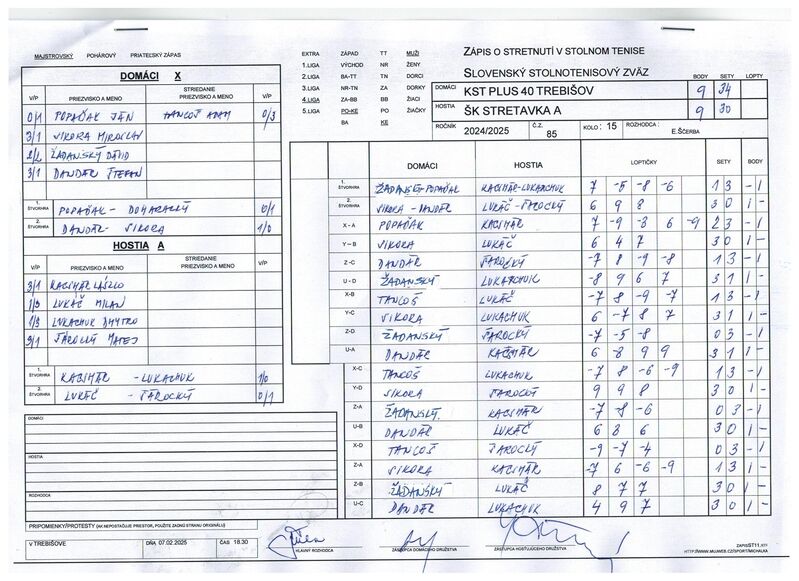 MAJSTROVSKÝ POHÁROVÝ PRIATEĽSKÝ ZÁPAS
DOMÁCI X
V/P PRIEZVISKO A MENO STRIEDANIE PRIEZVISKO A MENO V/P
0/1 POPAĎAK JÁN TANCOŠ ADAM 0/3
3/1 SIKORA MIROSLAV
2/2 ŽADANSKÝ DÁVID
3/1 DANDÁR ŠTEFAN
1. ŠTVORHRA POPAĎAK - 0/1
2. ŠTVORHRA DANDÁR - SIKORA 1/0
HOSTIA A
V/P PRIEZVISKO A MENO STRIEDANIE PRIEZVISKO A MENO V/P
3/1 KACIMÁR LÁSZLO
1/3 LUKÁČ MILAN
1/3 LUKACHUK DMYTRO
3/1 ŠAROCKÝ MATEJ
1. ŠTVORHRA KACIMÁR - LUKACHUK 1/0
2. ŠTVORHRA LUKÁČ - ŠAROCKÝ 0/1
DOMÁCI
HOSTIA
ROZHODCA
PRIPOMIENKY/PROTESTY (AK NEPOSTAČUJE PRIESTOR, POUŽITE ZADNÚ STRANU ORIGINÁLU)
V TREBIŠOVE DŇA 07.02.2025 ČAS 18.30
EXTRA ZÁPAD TT MUŽI
1.LIGA VÝCHOD NR ŽENY
2.LIGA BA-TT TN DORCI
3.LIGA NR-TN ZA DORKY
4.LIGA ZA-BB BB ŽIACI
5.LIGA PO-KE PO ŽIAČKY
BA KE
ZÁPIS O STRETNUTÍ V STOLNOM TENISE
SLOVENSKÝ STOLNOTENISOVÝ ZVÄZ
BODY SETY LOPTY
DOMÁCI KST PLUS 40 TREBIŠOV 9 34
HOSTIA ŠK STRETAVKA A 9 30
ROČNÍK 2024/2025 Č.Z. 85 KOLO : 15 ROZHODCA : E.ŠČERBA
DOMÁCI HOSTIA LOPTIČKY SETY BODY
1. ŠTVORHRA ŽADANSKÝ-POPAĎAK KACIMÁR-LUKACHUK 7 -5 -8 -6 1 3 - 1
2. ŠTVORHRA SIKORA - DANDÁR LUKÁČ-ŠAROCKÝ 6 9 8 3 0 1 -
X - A POPAĎAK KACIMÁR 7 -9 -3 6 -9 2 3 - 1
Y – B SIKORA LUKÁČ 6 4 7 3 0 1 -
Z -C DANDÁR ŠAROCKÝ -7 8 -9 -8 1 3 - 1
U - D ŽADANSKÝ LUKACHUK -8 9 6 7 3 1 1 -
X-B TANCOŠ LUKÁČ -7 8 -9 -7 1 3 - 1
Y-C SIKORA LUKACHUK 6 -7 8 7 3 1 1 -
Z-D ŽADANSKÝ ŠAROCKÝ -7 -5 -8 0 3 - 1
U-A DANDÁR KACIMÁR 6 -8 9 9 3 1 1 -
X-C TANCOŠ LUKACHUK -7 8 -6 -9 1 3 - 1
Y-D SIKORA ŠAROCKÝ 9 9 8 3 0 1 -
Z-A ŽADANSKÝ KACIMÁR -7 -8 -6 0 3 - 1
U-B DANDÁR LUKÁČ 6 8 6 3 0 1 -
X-D TANCOŠ ŠAROCKÝ -9 -7 -4 0 3 - 1
Z-A SIKORA KACIMÁR -7 6 -6 -9 1 3 - 1
Z-B ŽADANSKÝ LUKÁČ 8 7 7 3 0 1 -
U-C DANDÁR LUKACHUK 4 9 7 3 0 1 -
HLAVNÝ ROZHODCA ZÁSTUPCA DOMÁCEHO DRUŽSTVA ZÁSTUPCA HOSŤUJÚCEHO DRUŽSTVA
ZAPISST11.XTT
HTTP://WWW.MUJWEB.CZ/SPORT/MICHALKA